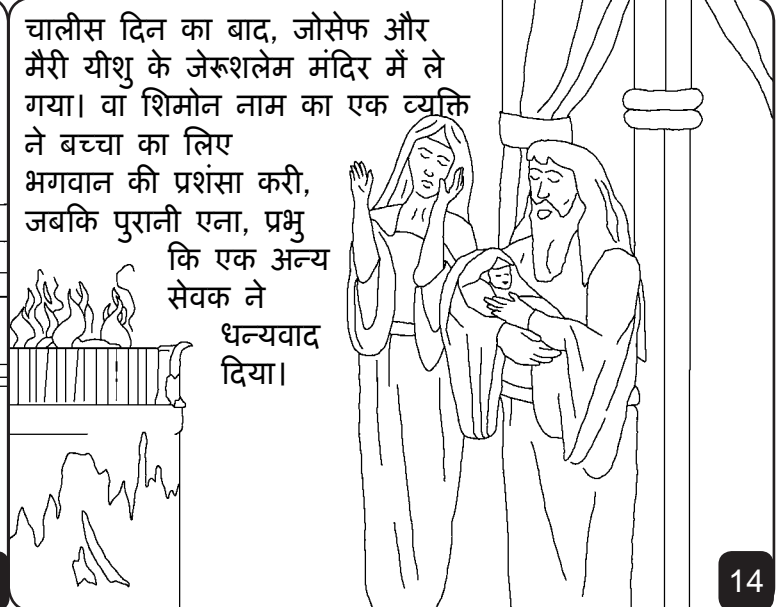 चालीस दिन का बाद, जोसेफ और
मैरी यीशु के जेरूशलेम मंदिर में ले
गया। वा शिमोन नाम का एक व्यक्ति
ने बच्चा का लिए
भगवान की प्रशंसा करी,
जबकि पुरानी एना, प्रभु
कि एक अन्य
सेवक ने
धन्यवाद
दिया।
14